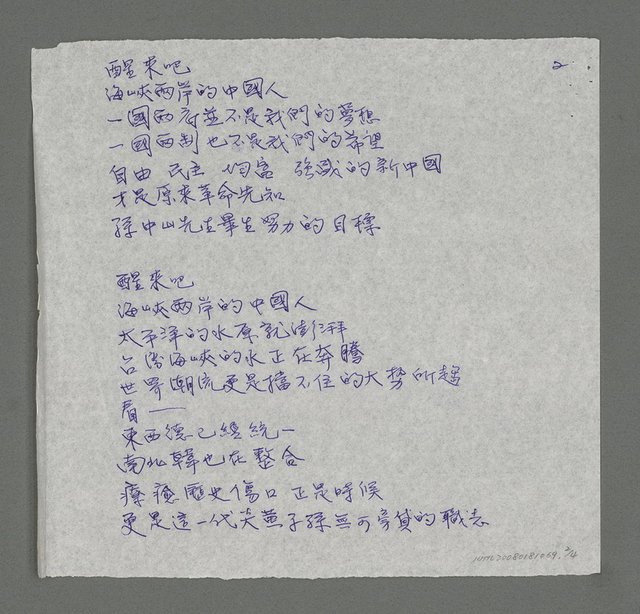 2
醒來吧
海峽兩岸的中國人
一國兩府並不是我們的夢想
一國兩制也不是我們的希望
自由 民主 均富 強盛的新中國
才是原來革命先知
孫中山先生畢生努力的目標
醒來吧
海峽兩岸的中國人
太平洋的水原就澎湃
台灣海峽的水正在奔騰
世界潮流更是擋不住的大勢所趨
看——
東西德已經統一
南北韓也在整合
療癒歷史傷口正是時候
更是這一代炎黃子孫無可旁貸的職志
NMTL20080181069. 2/4